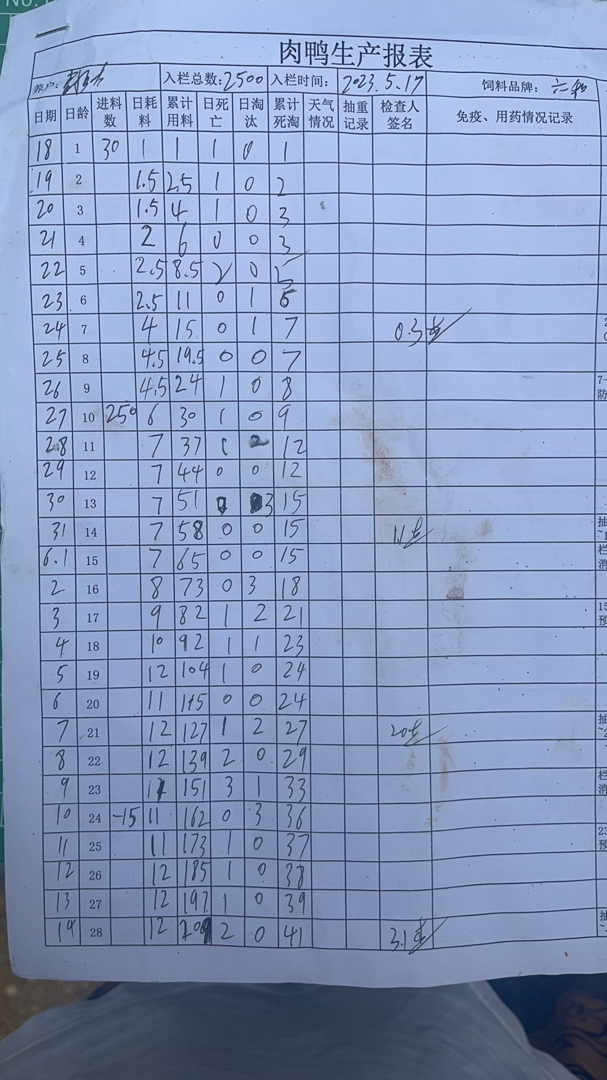 No.
肉鸭生产报表
养户: 入栏总数:2500 入栏时间: 2023.5.17 饲料品牌: 六和
日期 日龄 进料数 日耗料 累计用料 日死亡 日淘汰 累计死淘 天气情况 抽重记录 检查人签名 免疫、用药情况记录
18 1 30 1 1 1 0 1
19 2 1.5 2.5 1 0 2
20 3 1.5 4 1 0 3
21 4 2 6 0 0 3
22 5 2.5 8.5 2 0 5
23 6 2.5 11 0 1 6
24 7 4 15 0 1 7 0.3
25 8 4.5 19.5 0 0 7
26 9 4.5 24 1 0 8
27 10 250 6 30 1 0 9
28 11 7 37 1 2 12
29 12 7 44 0 0 12
30 13 7 51 0 3 15
31 14 7 58 0 0 15 1.1
6.1 15 7 65 0 0 15
2 16 8 73 0 3 18
3 17 9 82 1 2 21
4 18 10 92 1 1 23
5 19 12 104 1 0 24
6 20 11 115 0 0 24
7 21 12 127 1 2 27
8 22 12 139 2 0 29
9 23 151 3 1 33
10 24 -15 11 162 0 3 36
11 25 11 173 1 0 37
12 26 12 185 1 0 38
13 27 12 197 1 0 39
14 28 12 209 2 0 41 3.1